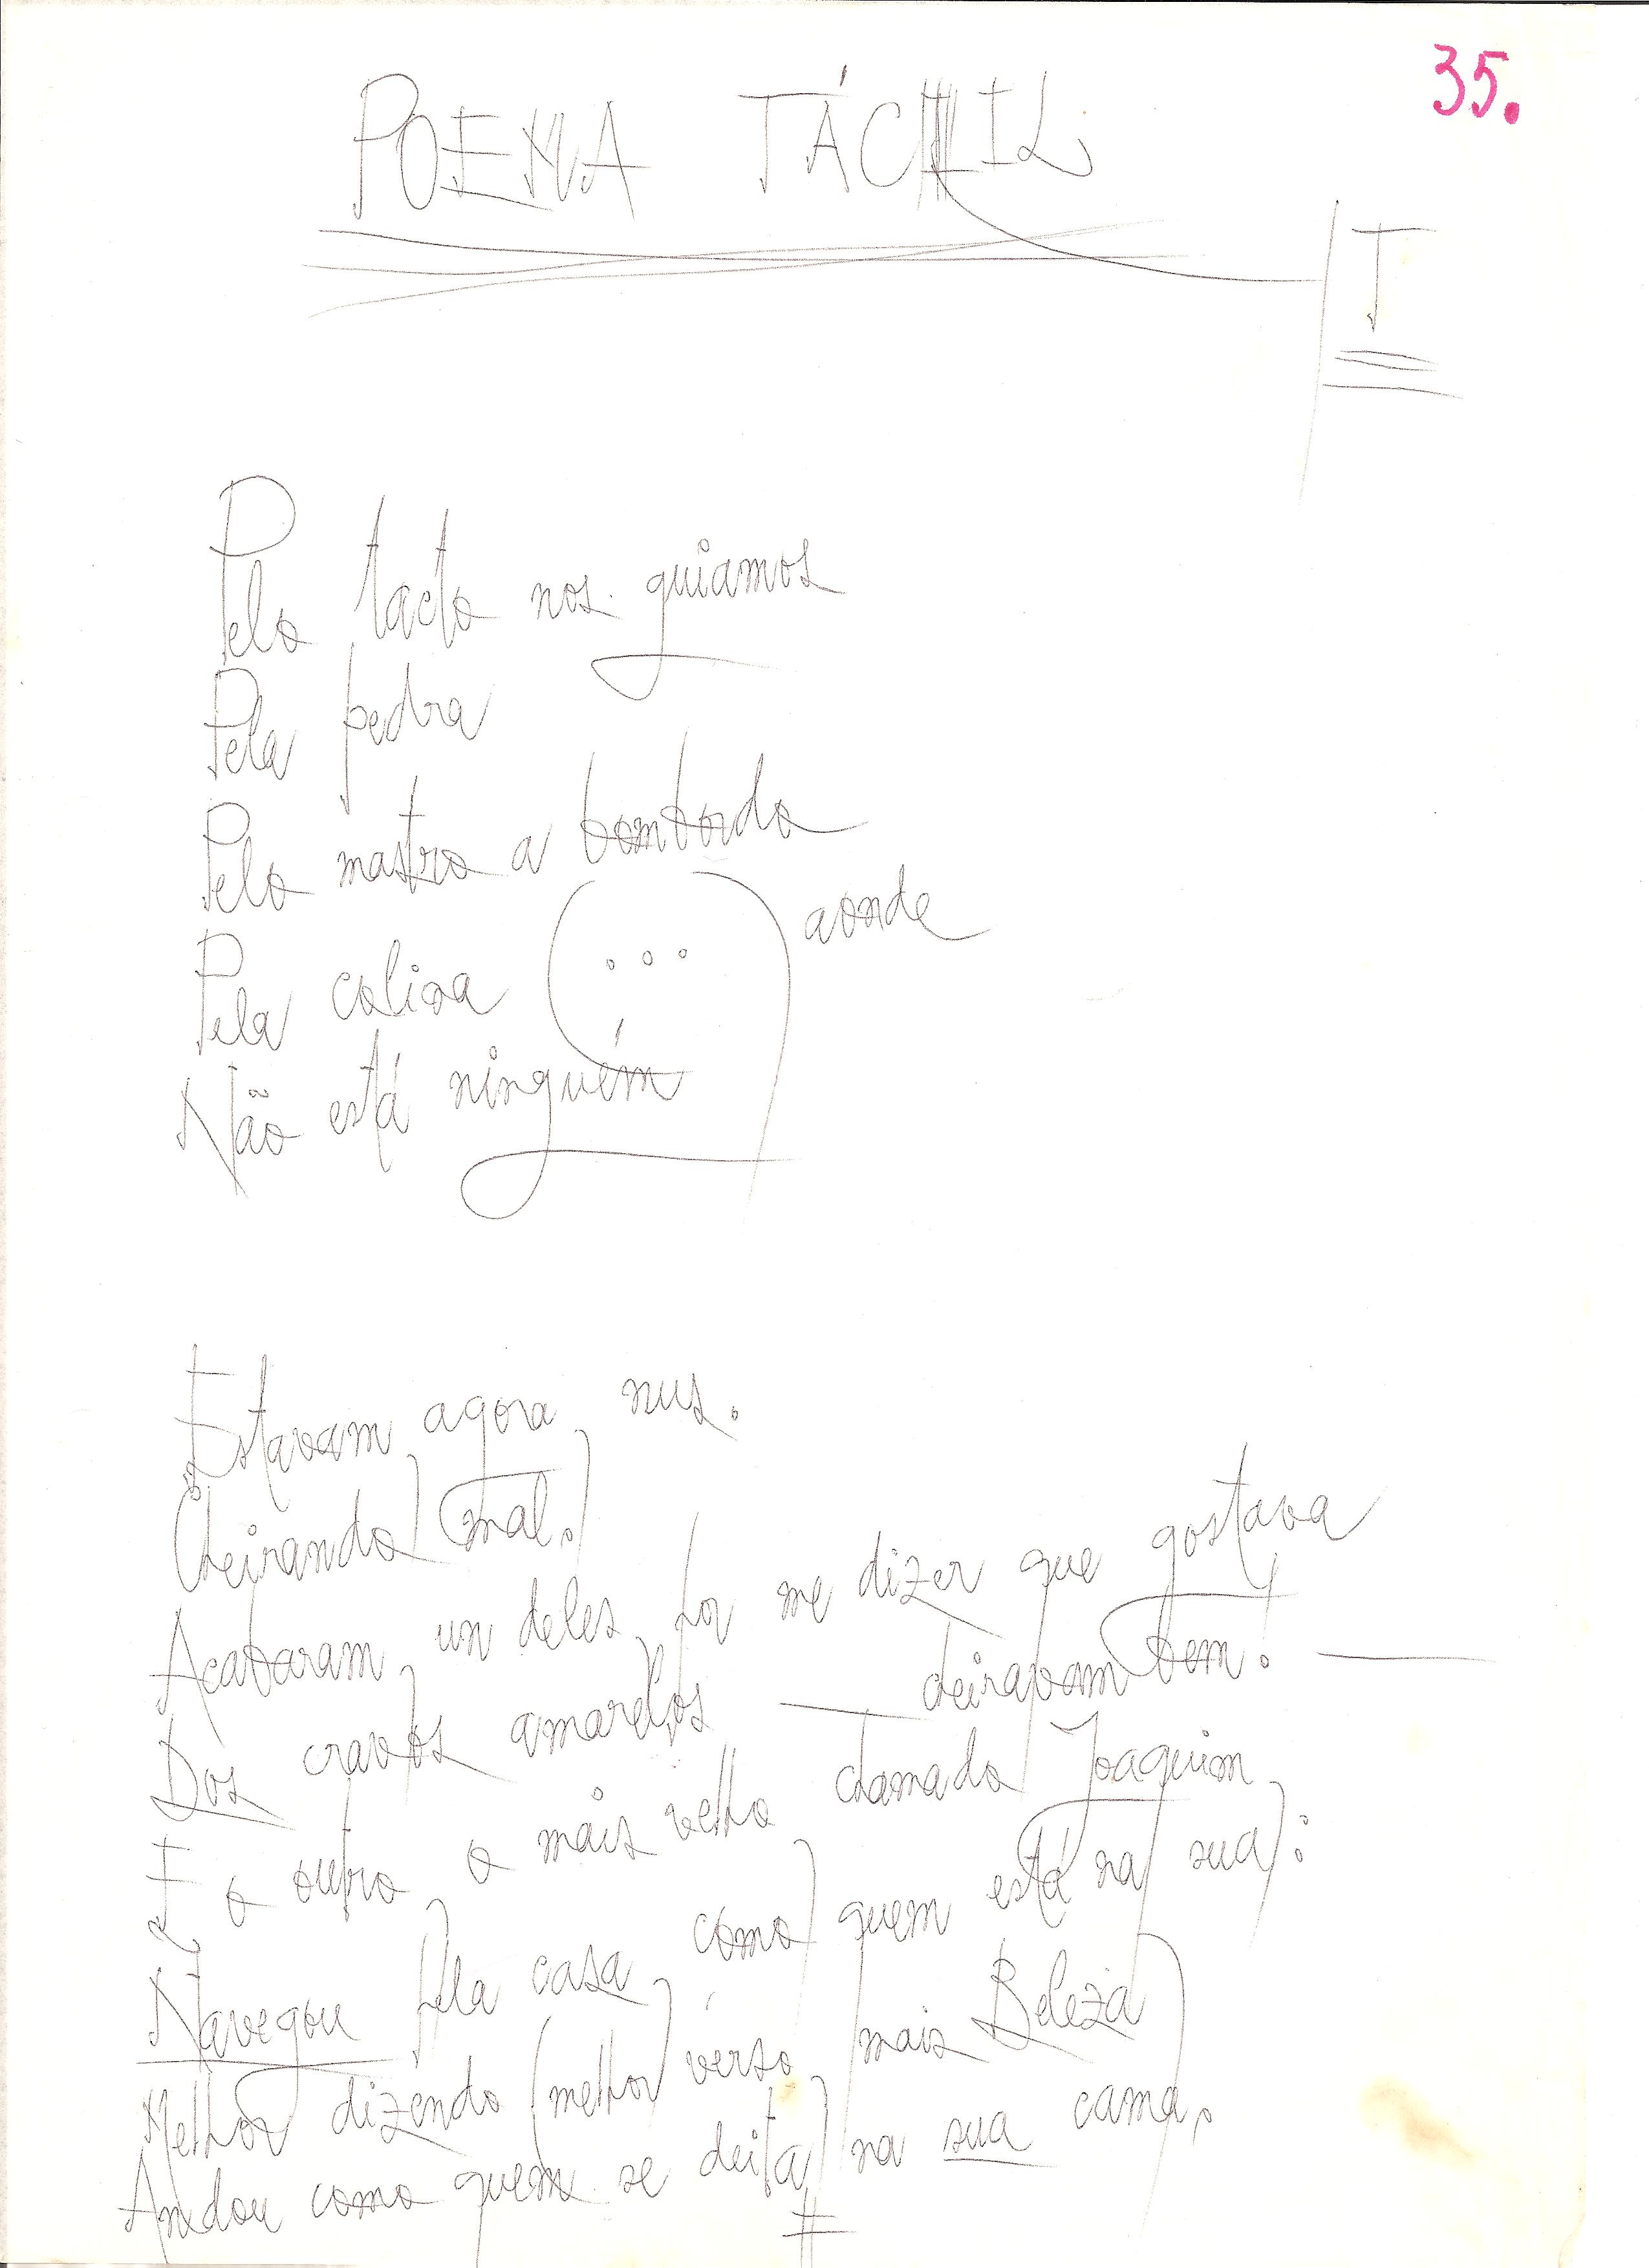 35.
POEMA TÁCTIL
T
Pelo tacto nos guiamos
Pela pedra
Pelo mastro a bombordo
Pela colina (...) aonde
Não está ninguém
Estavam agora nus.
Cheirando (mal.)
Acabaram, um deles, por me dizer que gostava
Dos cravos amarelos — cheiravam bem! —
E o outro, o mais velho chamado Joaquim,
Navegou pela casa, como quem está na sua:
Melhor dizendo (melhor verso, mais Beleza)
Andou como quem se deita na sua cama.